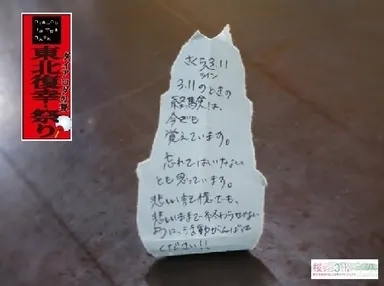 ダイアログ
東北復幸祭り
さくら311
ライン
3.11のときの
経験は、
今でも
覚えています。
忘れてはいけない
とも思っています。
悲しい記憶でも、
悲しいままで終わらせない
ように、活動がんばって
ください!!